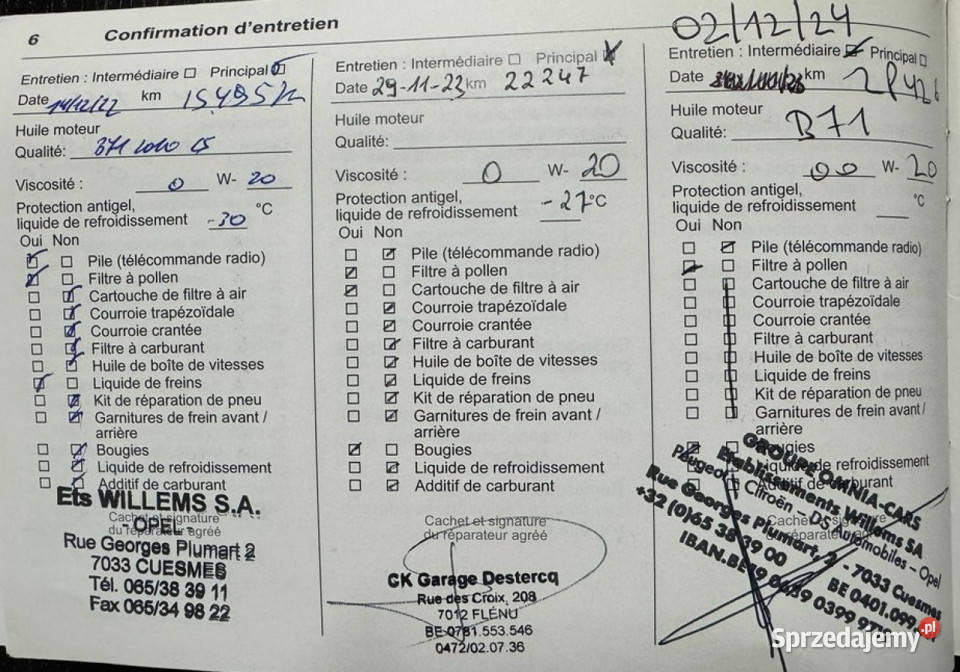 6 Confirmation d'entretien
Entretien : Intermédiaire Principal
Date 14/12/22 km
Huile moteur
Qualité: B71
Viscosité : 0 W- 20
Protection antigel,
liquide de refroidissement -30 °C
Oui Non
Pile (télécommande radio)
Filtre à pollen
Cartouche de filtre à air
Courroie trapézoïdale
Courroie crantée
Filtre à carburant
Huile de boîte de vitesses
Liquide de freins
Kit de réparation de pneu
Garnitures de frein avant /
arrière
Bougies
Liquide de refroidissement
Additif de carburant
Ets WILLEMS S.A.
Cachet et signature
- OPEL -
du réparateur agréé
Rue Georges Plumart 2
7033 CUESMES
Tél. 065/38 39 11
Fax 065/34 98 22
Entretien : Intermédiaire Principal
Date 29-11-23 km 22247
Huile moteur
Qualité:
Viscosité : 0 W- 20
Protection antigel,
liquide de refroidissement -27°C
Oui Non
Pile (télécommande radio)
Filtre à pollen
Cartouche de filtre à air
Courroie trapézoïdale
Courroie crantée
Filtre à carburant
Huile de boîte de vitesses
Liquide de freins
Kit de réparation de pneu
Garnitures de frein avant /
arrière
Bougies
Liquide de refroidissement
Additif de carburant
Cachet et signature
du réparateur agréé
CK Garage Destercq
Rue des Croix, 208
7012 FLÉNU
BE 0781.553.546
0472/02.07.36
02/12/24
Entretien : Intermédiaire Principal
Date km
Huile moteur
Qualité: B71
Viscosité : 00 W- 20
Protection antigel,
liquide de refroidissement °C
Oui Non
Pile (télécommande radio)
Filtre à pollen
Cartouche de filtre à air
Courroie trapézoïdale
Courroie crantée
Filtre à carburant
Huile de boîte de vitesses
Liquide de freins
Kit de réparation de pneu
Garnitures de frein avant /
arrière
Bougies
Liquide de refroidissement
Additif de carburant
Cachet et signature
du réparateur agréé
GROUPE OMNIA-CARS
Etablissements Willems SA
Peugeot - Citroën - DS Automobiles - Opel
Rue Georges Plumart, 2 - 7033 Cuesmes
+32 (0)65 38 39 00 BE 0401.099.
IBAN.BE19 0399
Sprzedajemy.pl